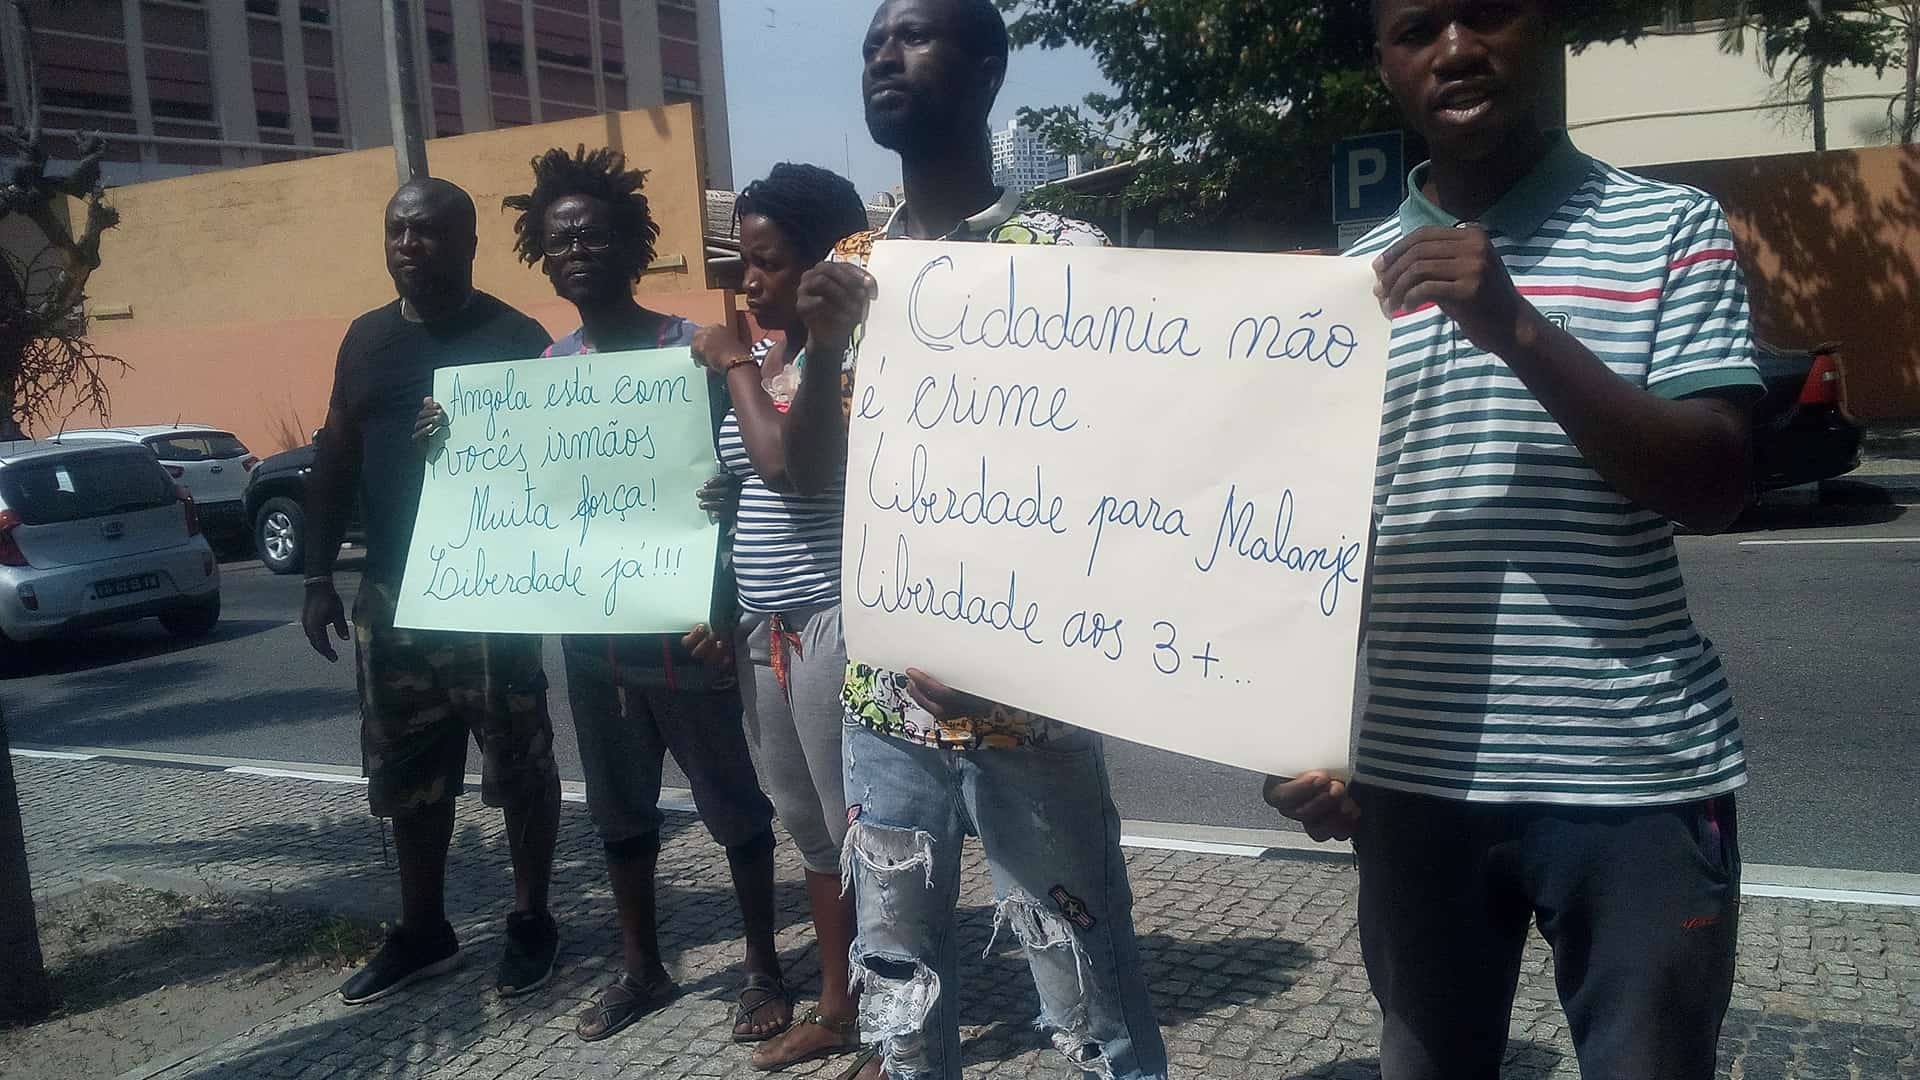 Angola está com
vocês irmãos
Muita força!
Liberdade já!!!
Cidadania não
é crime.
Liberdade para Malanje
Liberdade aos 3+...
P